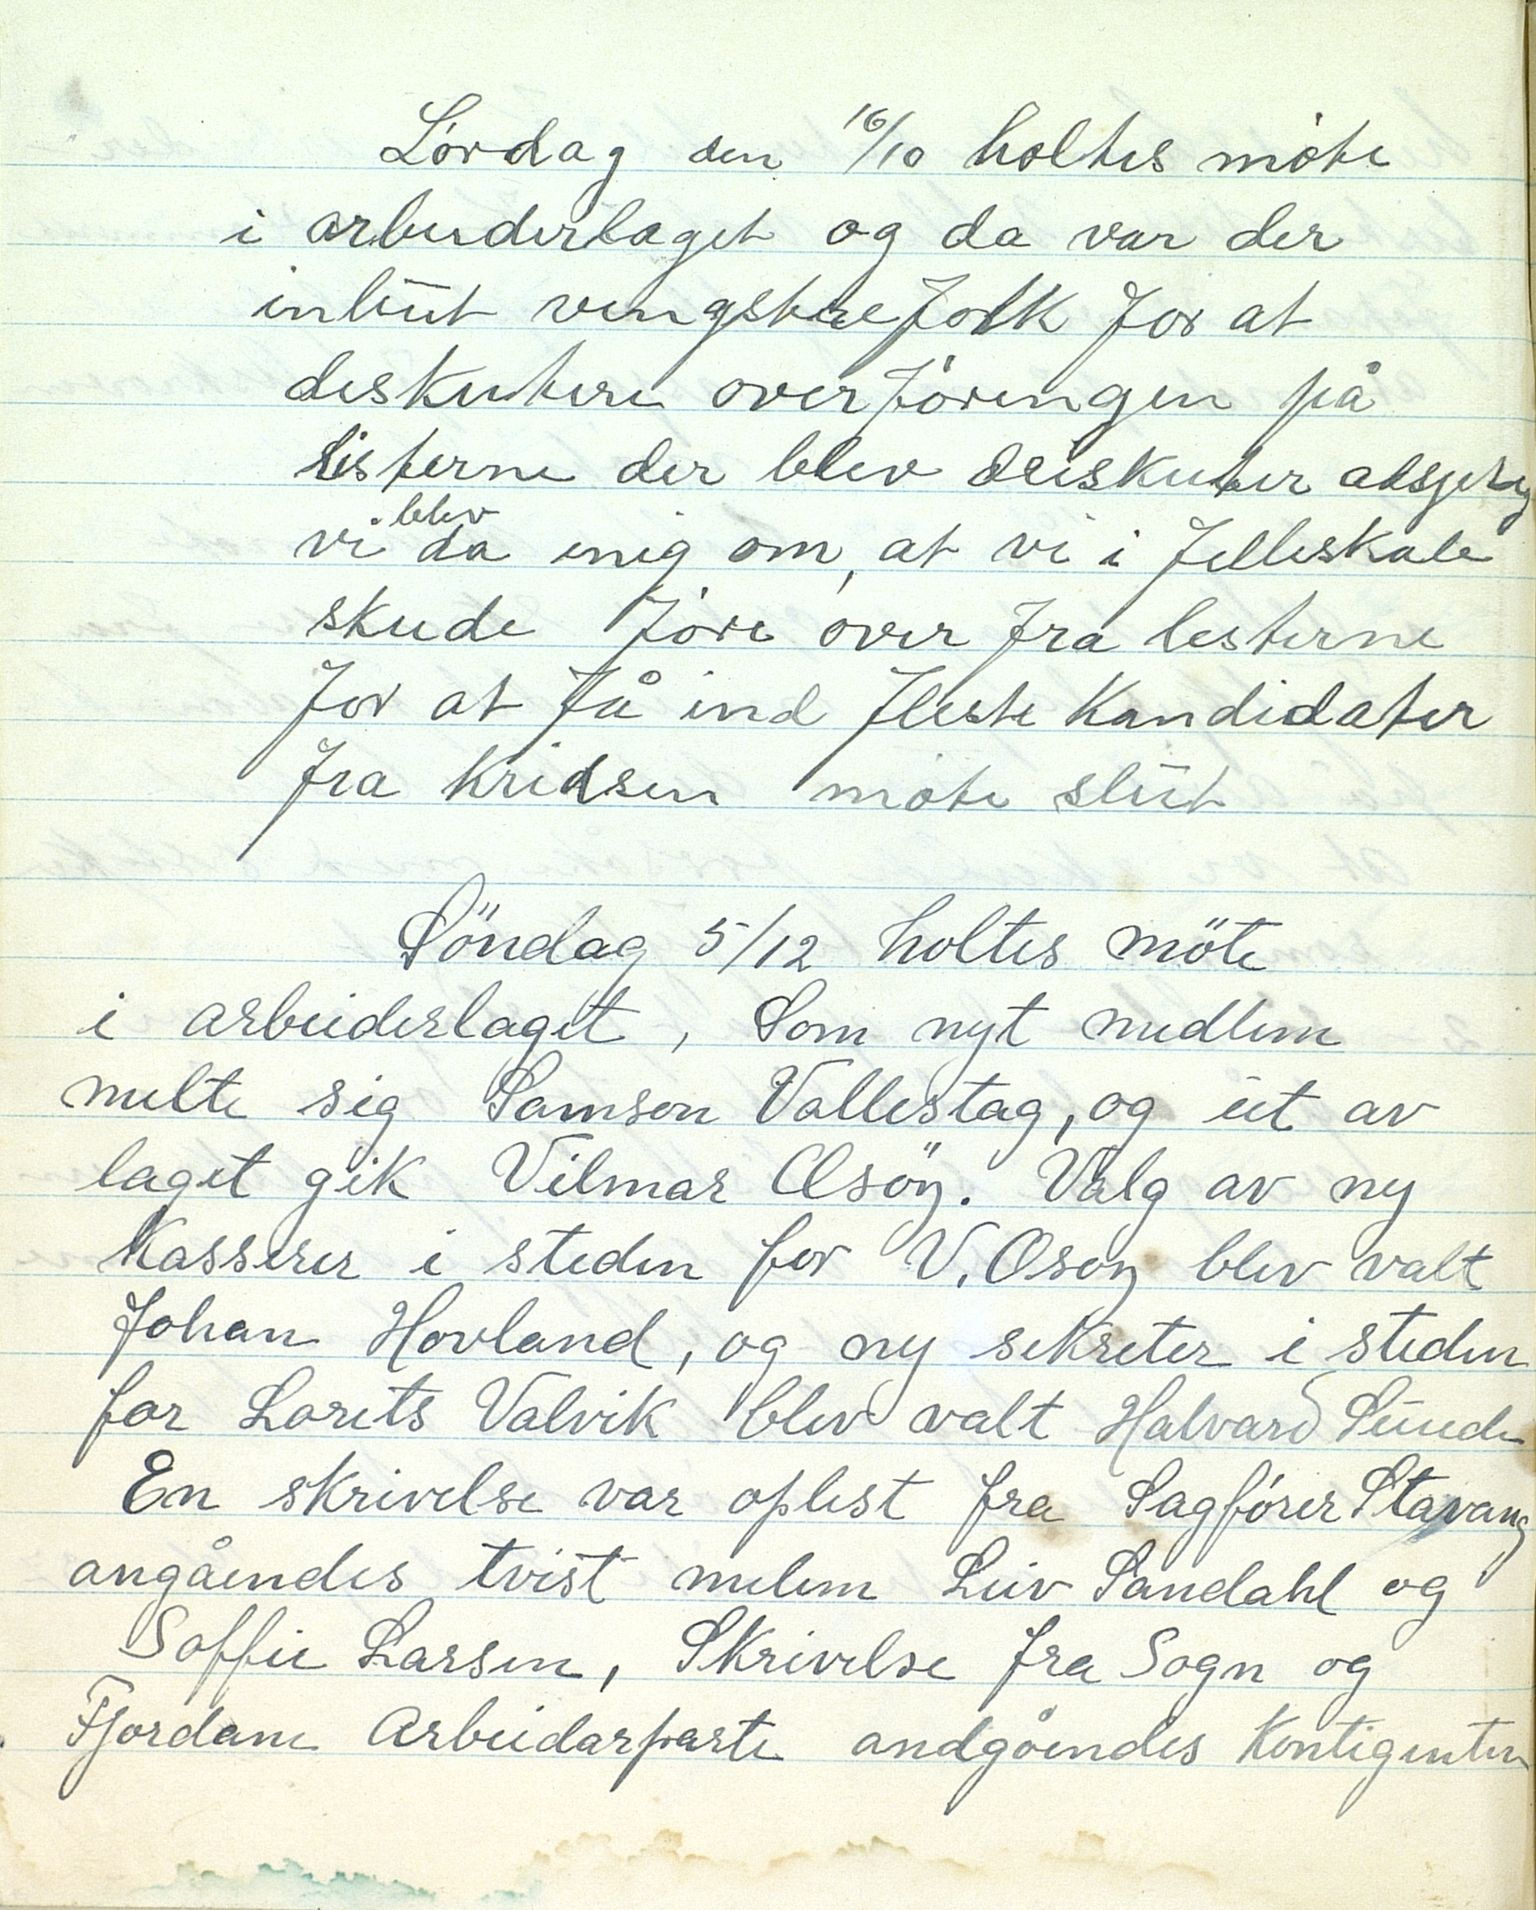 Lørdag den 16/10 holtes møte
i arbeiderlaget og da var der
inbüt vengstrefolk for at
deskutere overføringen på
listerne der blev deiskuter
vi blev da enig om, at vi i felleskab
skude føre over fra lesterne
for at få ind fleste Kandidater
fra Kridsen møte slüt
Söndag 5/12 holtes möte
i arbeiderlaget, Som nyt medlem
melte sig Samson Vallestag, og üt av
laget gik Vilmar Osöy. Valg av ny
Kasserer i steden for V. Osöy blev valt
Johan Hovland, og ny sekreter i steden
for Lorits Valvik blev valt Halvard Sünde
En skrivelse var oplest fra Sagfører Stavang
angåendes tvist melem Leiv Sandahl og
Soffie Larsen, Skrivelse fra Sogn og
Fjordane Arbeidarparte andgåendes Kontigenten